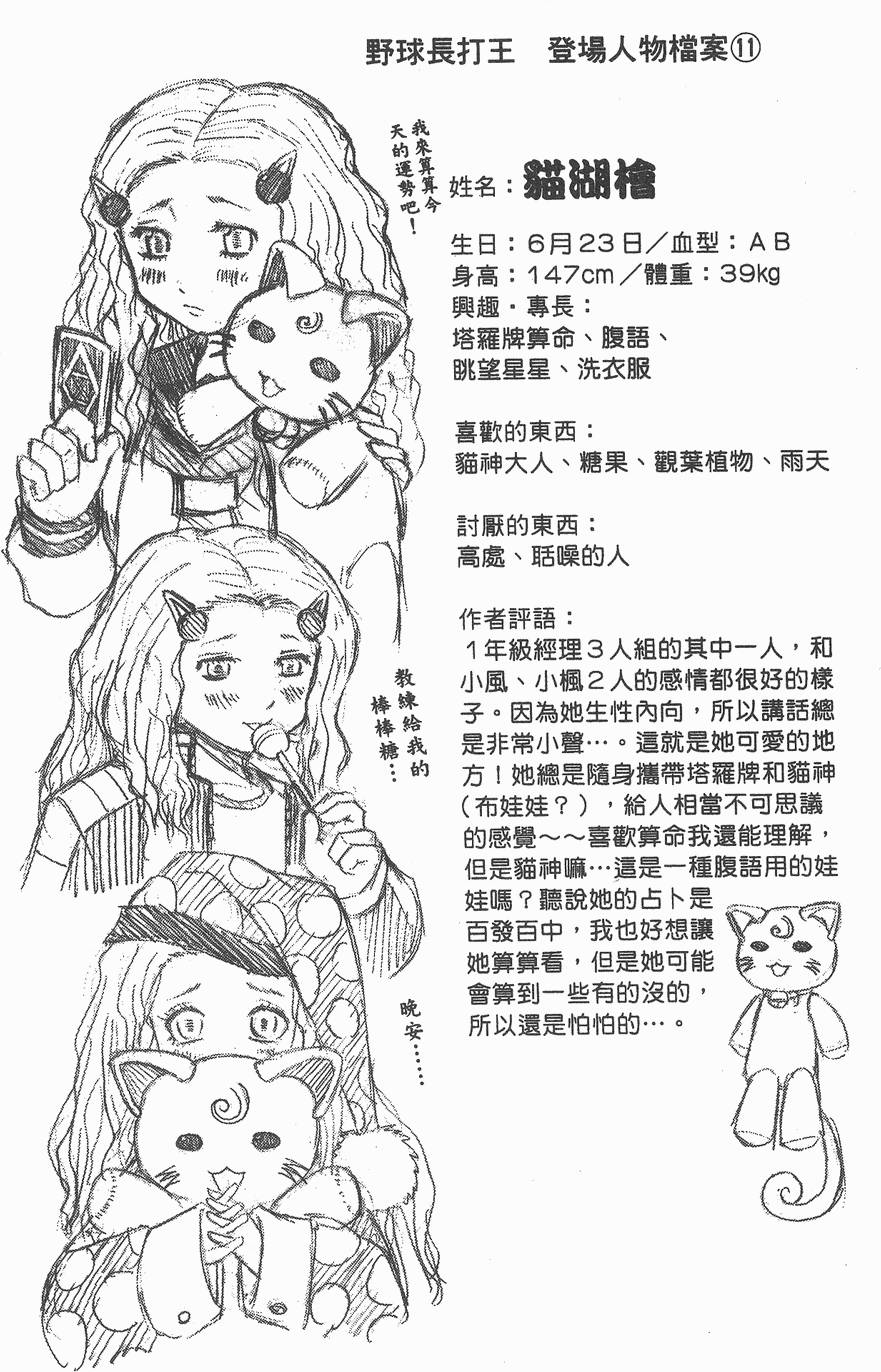 野球長打王　登場人物檔案⑪
我來算算今
天的運勢吧！
姓名：貓湖檜
生日：6月23日／血型：AB
身高：147cm／體重：39kg
興趣・專長：
塔羅牌算命、腹語、
眺望星星、洗衣服
喜歡的東西：
貓神大人、糖果、觀葉植物、雨天
討厭的東西：
高處、聒噪的人
作者評語：
1年級經理3人組的其中一人，和
小風、小楓2人的感情都很好的樣
子。因為她生性內向，所以講話總
是非常小聲…。這就是她可愛的地
方！她總是隨身攜帶塔羅牌和貓神
（布娃娃？），給人相當不可思議
的感覺～～喜歡算命我還能理解，
但是貓神嘛…這是一種腹語用的娃
娃嗎？聽說她的占卜是
百發百中，我也好想讓
她算算看，但是她可能
會算到一些有的沒的，
所以還是怕怕的…。
教練給我的
棒棒糖…
晚安……